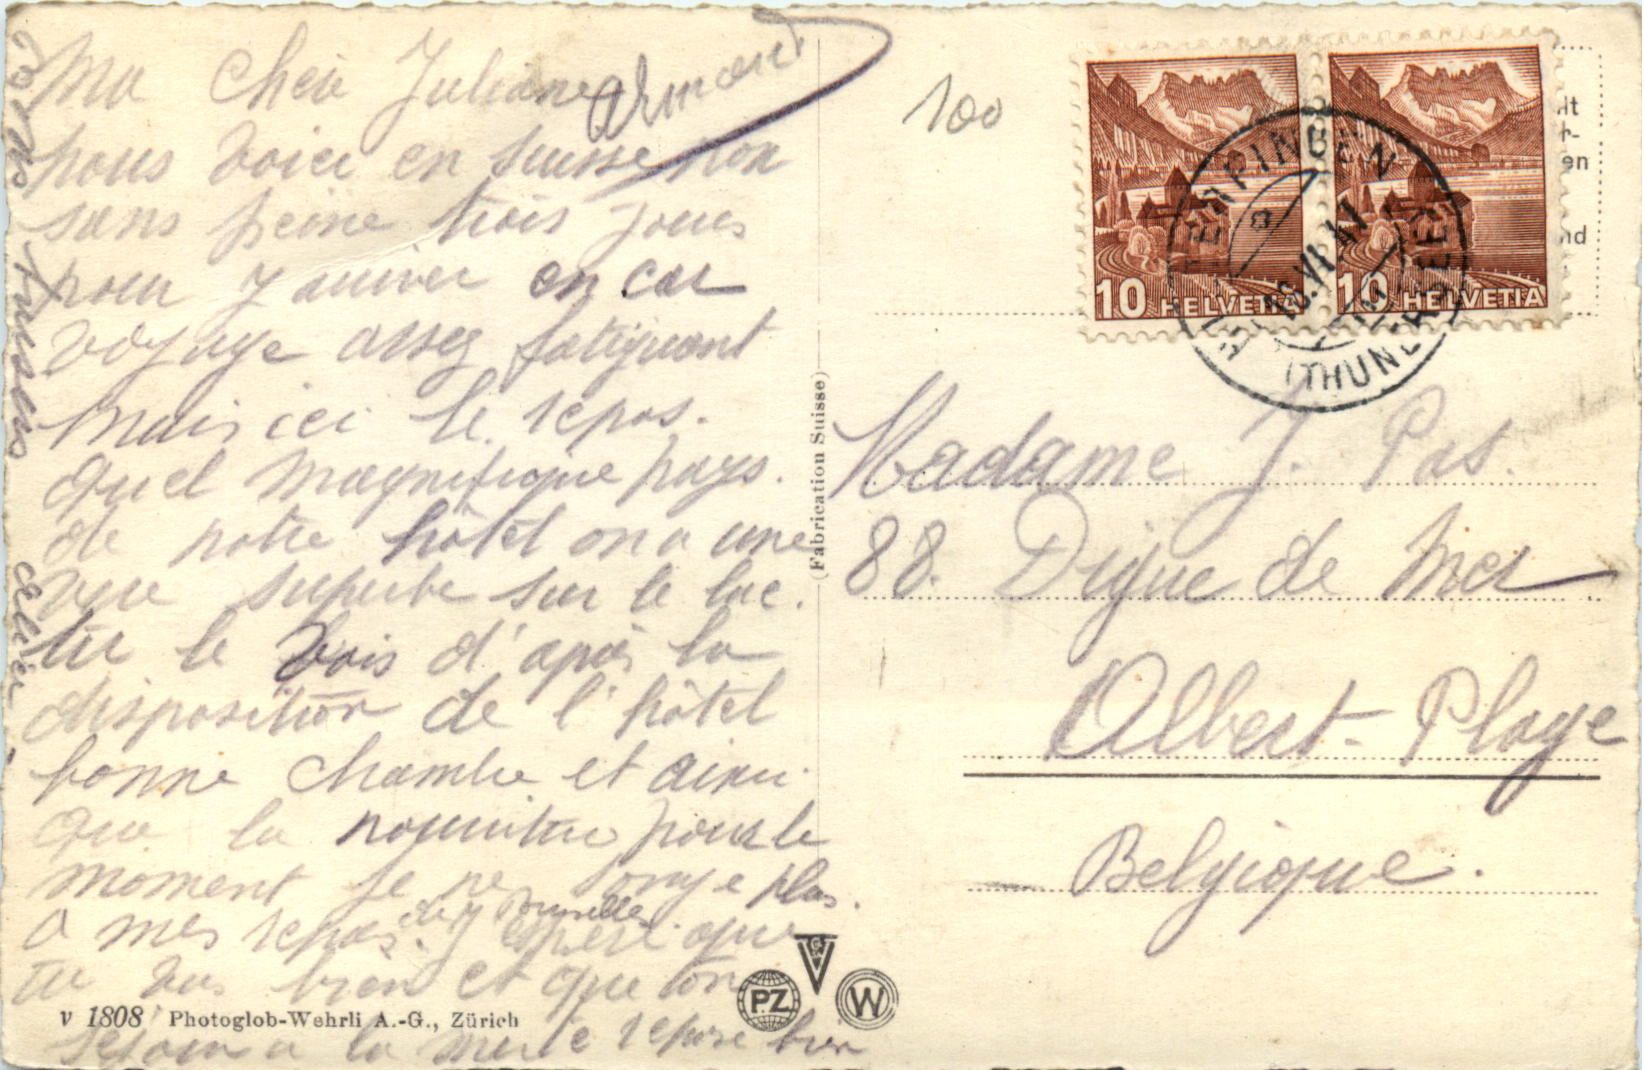 Ma Chère Juliane
Armand
nous voici en Suisse non
sans peine trois jours
pour y arriver en car
voyage assez fatiguant
mais ici le repos.
Quel magnifique pays.
de notre hôtel on a une
vue superbe sur le lac.
tu le vois d'après la
disposition de l'hôtel
bonne chambre et ainsi
que la nourriture pour le
moment je ne songe plus
a mes repas de Bruxelles. J'espère que
tu vas bien et que ton
séjour a la mer te repose bien
bons baisers
v 1808 Photoglob-Wehrli A.-G., Zürich
(Fabrication Suisse)
PZ
W
100
10 HELVETIA
10 HELVETIA
VI.47
(THUNERSEE)
Madame J. Pas.
88. Digue de Mer
Albert-Plage
Belgique.